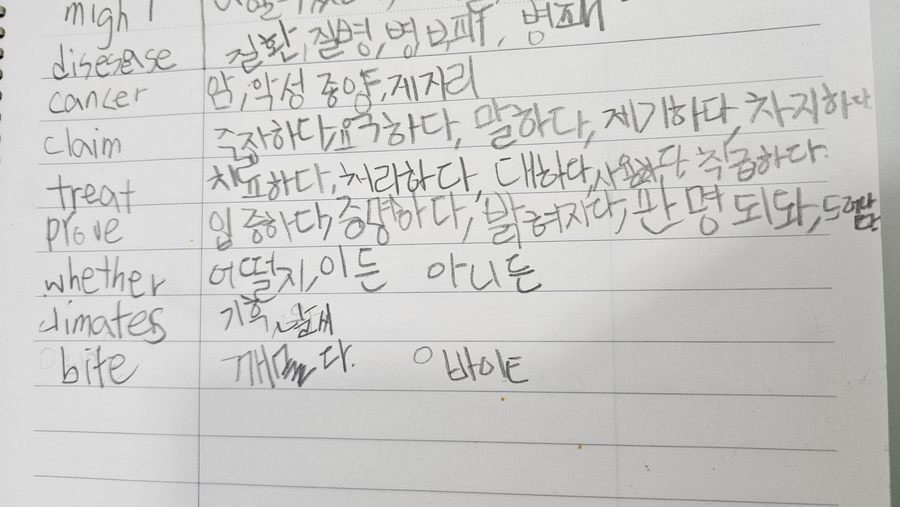 might
disesease 질환, 질병, 병, 병폐
cancer 암, 악성 종양, 게자리
claim 주장하다, 요구하다, 말하다, 제기하다, 차지하다
treat 치료하다, 처리하다, 대하다, 취급하다.
prove 입증하다, 증명하다, 밝혀지다, 판명되돠,
whether 어떨지, 이든 아니든
climates 기혹, 날씨
bite 깨물다. 바이트